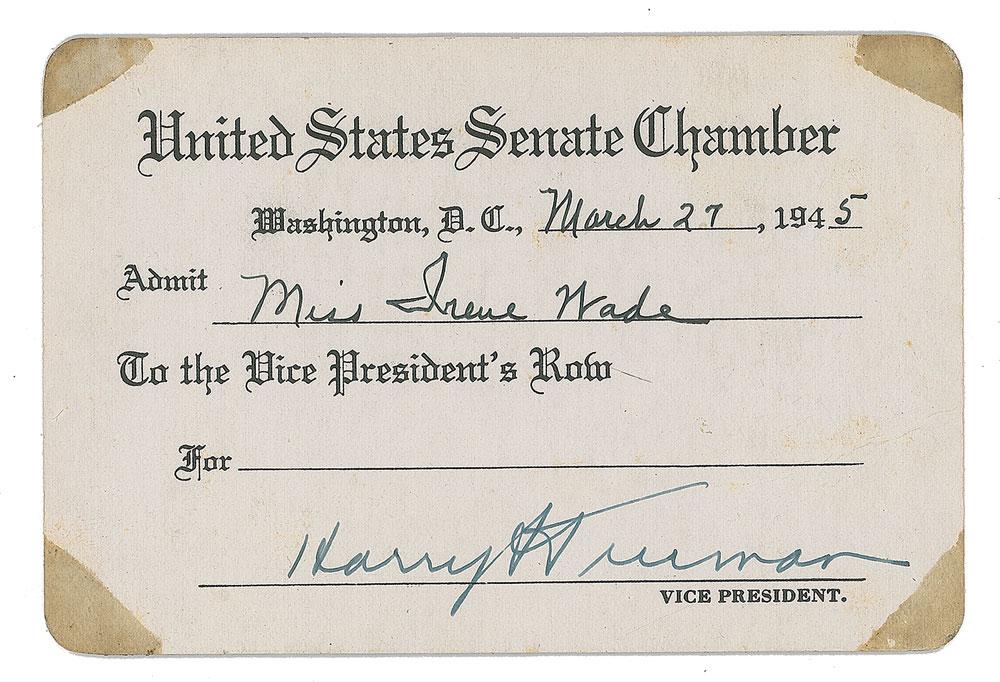 United States Senate Chamber
Washington, D. C., March 27, 1945
Admit Miss Irene Wade
To the Vice President's Row
For
Harry S Truman
VICE PRESIDENT.